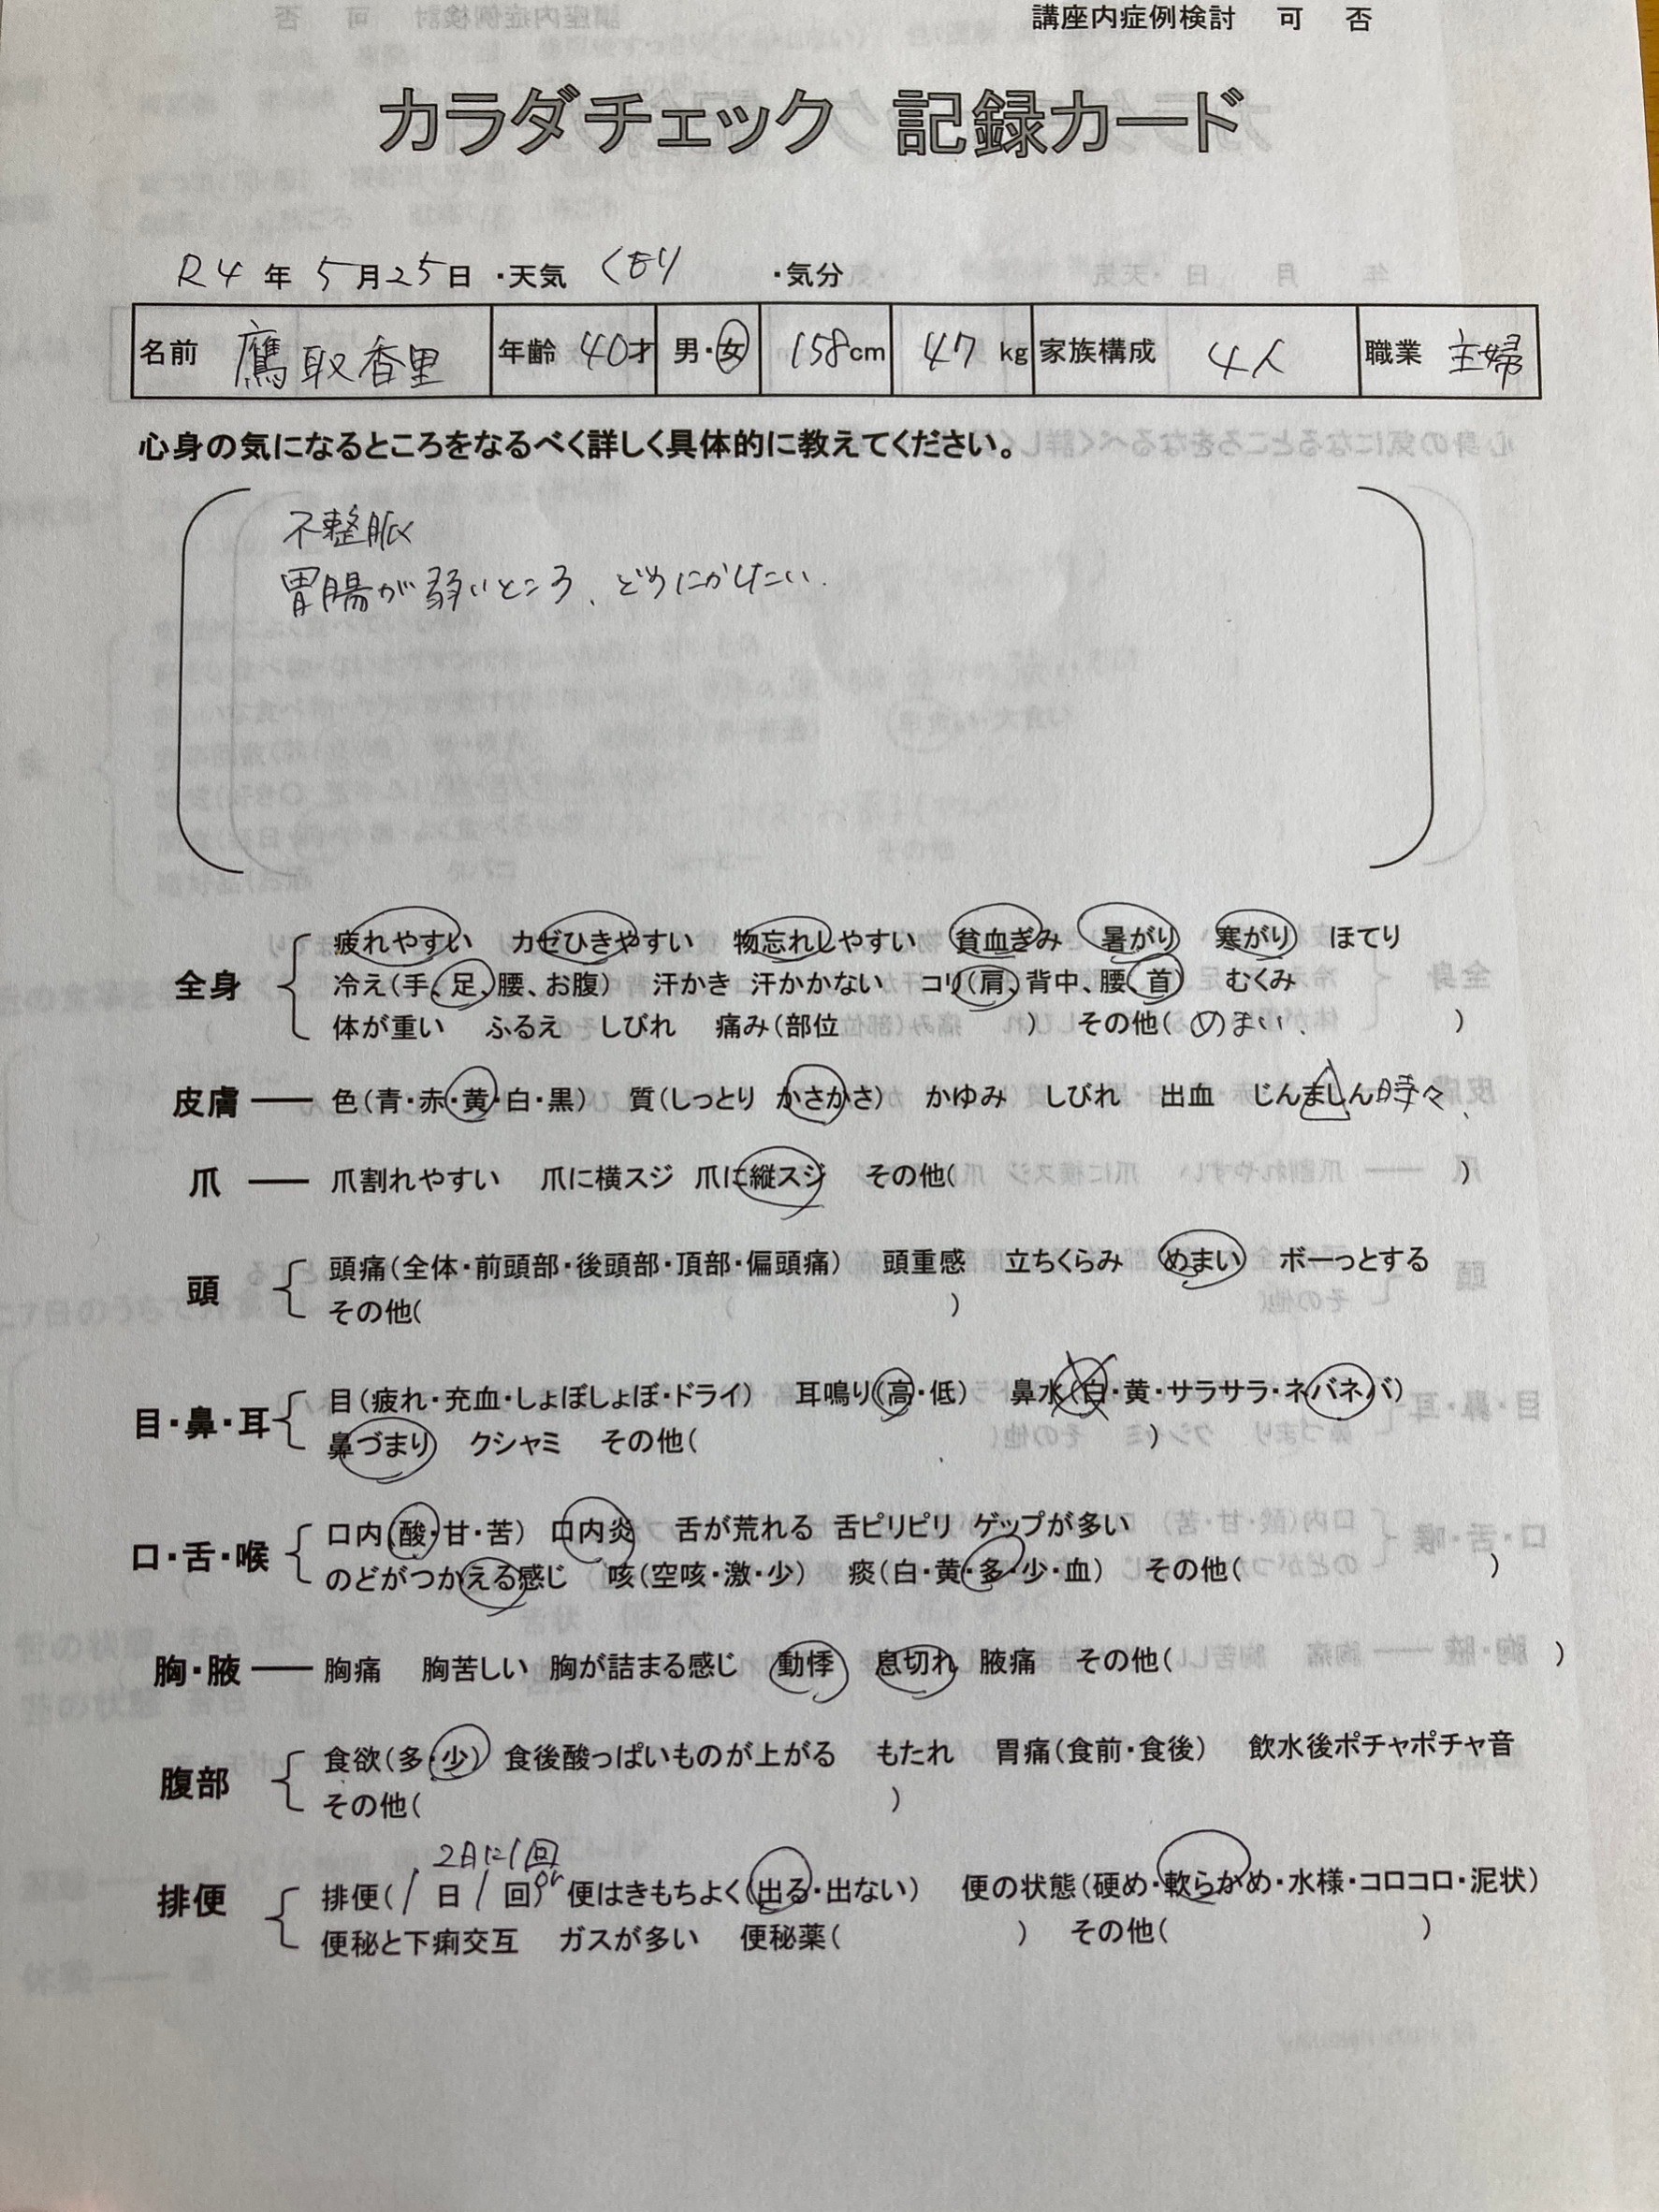 講座内症例検討 可 否
カラダチェック 記録カード
R4 年 5 月 25 日 ・天気 くもり ・気分
名前 鷹取香里 年齢 40才 男・女 158cm 47 kg 家族構成 4人 職業 主婦
心身の気になるところをなるべく詳しく具体的に教えてください。
不整脈
胃腸が弱いところ、どうにかしたい.
疲れやすい カゼひきやすい 物忘れしやすい 貧血ぎみ 暑がり 寒がり ほてり
全身 冷え(手、足、腰、お腹) 汗かき 汗かかない コリ(肩、背中、腰、首) むくみ
体が重い ふるえ しびれ 痛み(部位 ) その他( めまい、 )
皮膚 ── 色(青・赤・黄・白・黒) 質(しっとり かさかさ) かゆみ しびれ 出血 じんましん 時々、
爪 ── 爪割れやすい 爪に横スジ 爪に縦スジ その他( )
頭 頭痛(全体・前頭部・後頭部・頂部・偏頭痛) 頭重感 立ちくらみ めまい ボーっとする
その他( )
目・鼻・耳 目(疲れ・充血・しょぼしょぼ・ドライ) 耳鳴り(高・低) 鼻水(白・黄・サラサラ・ネバネバ)
鼻づまり クシャミ その他( )
口・舌・喉 口内(酸・甘・苦) 口内炎 舌が荒れる 舌ピリピリ ゲップが多い
のどがつかえる感じ 咳(空咳・激・少) 痰(白・黄・多・少・血) その他( )
胸・腋 ── 胸痛 胸苦しい 胸が詰まる感じ 動悸 息切れ 腋痛 その他( )
腹部 食欲(多・少) 食後酸っぱいものが上がる もたれ 胃痛(食前・食後) 飲水後ポチャポチャ音
その他( )
2日に1回
排便 排便( 1 日 1 回) or 便はきもちよく(出る・出ない) 便の状態(硬め・軟らかめ・水様・コロコロ・泥状)
便秘と下痢交互 ガスが多い 便秘薬( ) その他( )